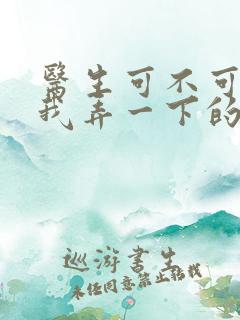 醫生可不可
我弄一下的
巡游書生
未经同意禁止转载